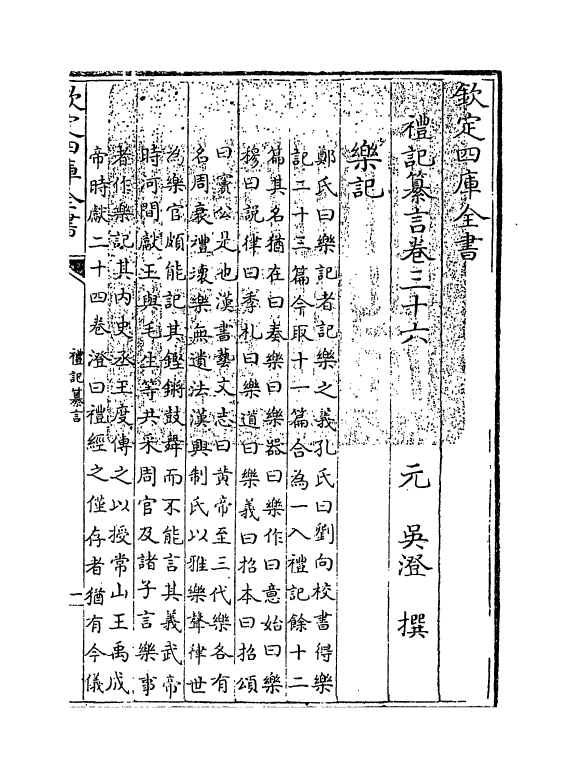 欽定四庫全書
禮記纂言卷三十六
元 吳澄 撰
樂記
鄭氏曰樂記者記樂之義孔氏曰劉向校書得樂
記二十三篇今取十一篇合為一入禮記餘十二
篇其名猶在曰奏樂曰樂器曰樂作曰意始曰樂
穆曰説律曰季札曰樂道曰樂義曰招本曰招頌
曰竇公是也漢書藝文志曰黄帝至三代樂各有
名周衰禮壊樂無遺法漢興制氏以雅樂聲律世
為樂官頗能記其鏗鏘鼓舞而不能言其義武帝
時河間獻王與毛生等共采周官及諸子言樂事
者作樂記其内史丞王度傳之以授常山王禹成
帝時獻二十四卷澄曰禮經之僅存者猶有今儀
欽定四庫全書
禮記纂言
一